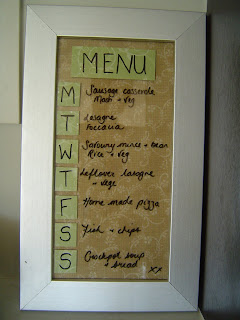 MENU
M Sausage casserole
Mash + veg
T Lasagne
Foccacia
W Savoury mince + bean
Rice + veg
T Leftover lasagne
+ vege
F Home made pizza
S Fish + chips
S Crockpot soup
+ bread
xx